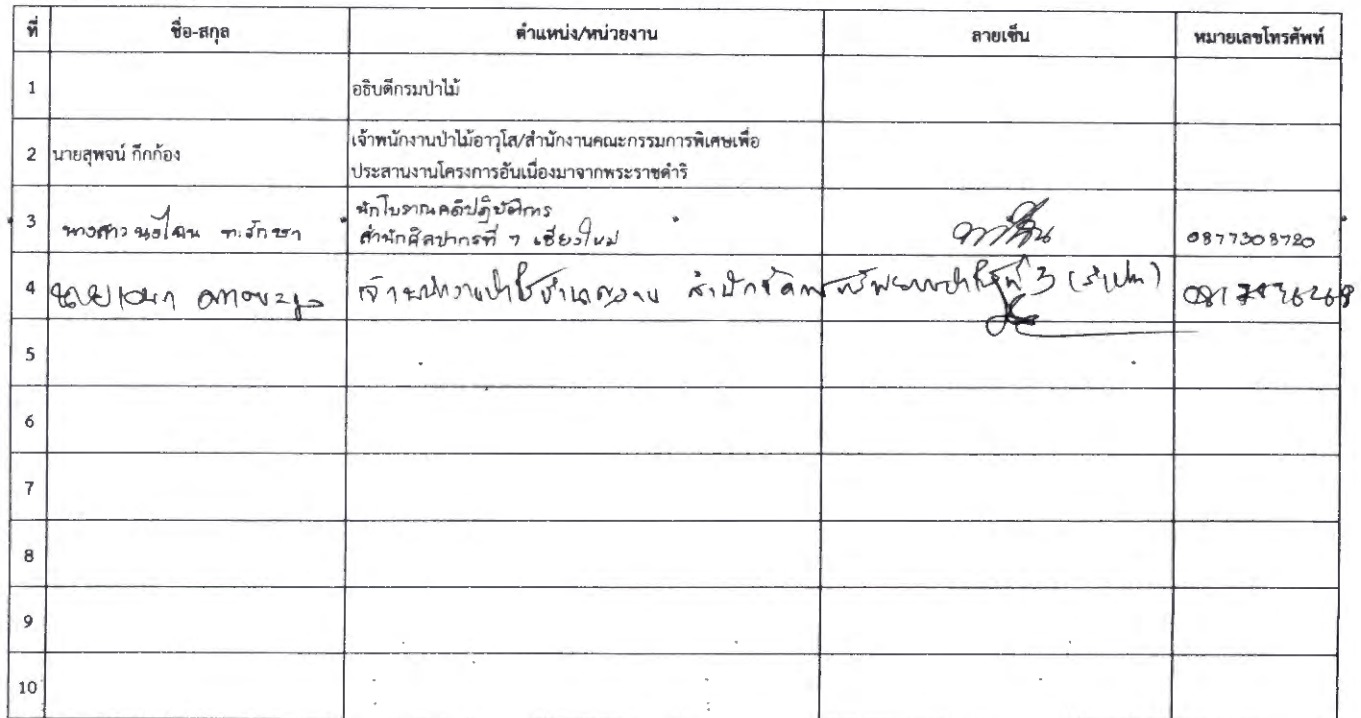 ที่ ชื่อ-สกุล ตำแหน่ง/หน่วยงาน ลายเซ็น หมายเลขโทรศัพท์
1 อธิบดีกรมป่าไม้
2 นายสุพจน์ กึกก้อง เจ้าพนักงานป่าไม้อาวุโส/สำนักงานคณะกรรมการพิเศษเพื่อ
ประสานงานโครงการอันเนื่องมาจากพระราชดำริ
3 นางสาว นงไฉน ทะรักษา นักโบราณคดีปฏิบัติการ
สำนักศิลปากรที่ 7 เชียงใหม่ 0877308720
4 นาย เจ้าพนักงานป่าไม้ชำนาญงาน สำนักจัดการทรัพยากรป่าไม้ที่ 3 (ลำปาง)
5
6
7
8
9
10